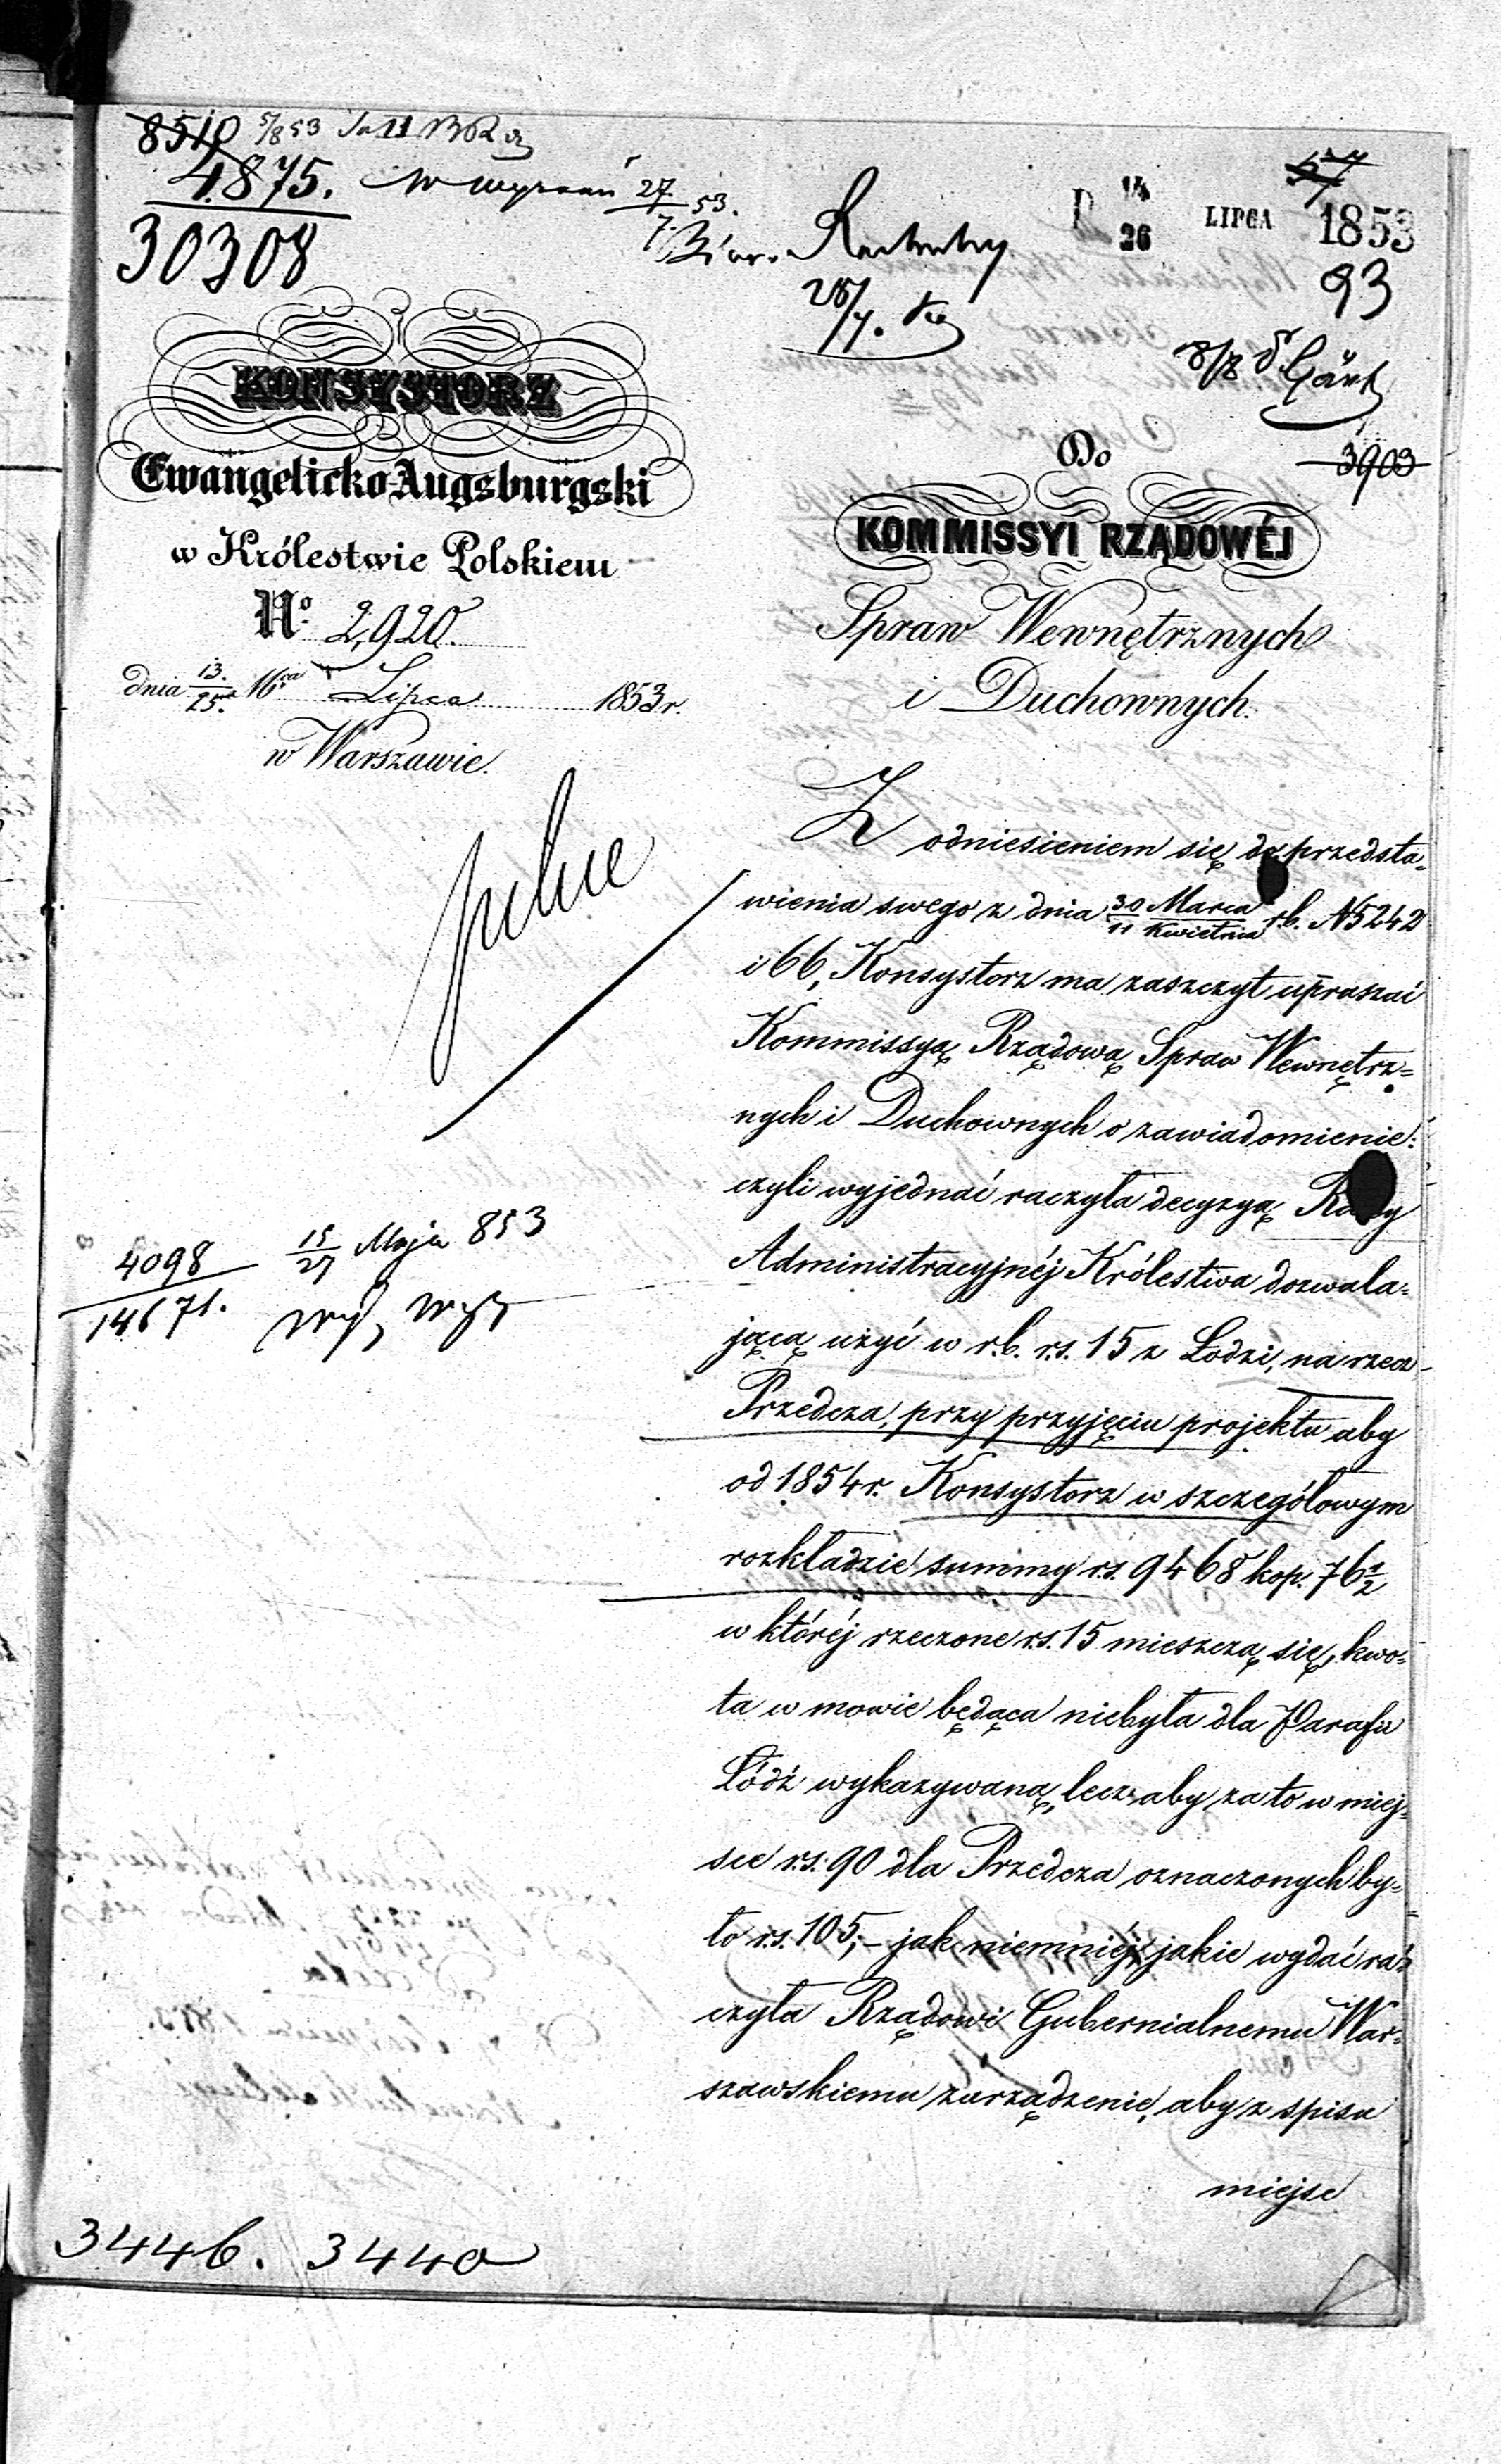 8510 5/8 53
4875.
30308
27/7 53.
14/26 LIPCA 1853
57
93
28/7.
8/8
3903
KONSYSTORZ
Ewangelicko-Augsburgski
w Królestwie Polskiem
No. 2,920.
dnia 13./25. Lipca 1853 r.
w Warszawie.
Do
KOMMISSYI RZĄDOWÉJ
Spraw Wewnętrznych
i Duchownych.
pilne
Z odniesieniem się do przedsta=
wienia swego z dnia 30 Marca/11 Kwietnia r.b. N 5242
i 66, Konsystorz ma zaszczyt upraszać
Kommissyą Rządową Spraw Wewnętrz=
nych i Duchownych o zawiadomienie:
czyli wyjednać raczyła decyzyą Rady
Administracyjnéj Królestwa dozwala=
jącą użyć w r.b. rs. 15 z Łodzi, na rzecz
Przedcza, przy przyjęciu projektu aby
od 1854 r. Konsystorz w szczegółowym
rozkładzie summy rs. 9468 kop. 76 1/2
w któréj rzeczone rs. 15 mieszczą się, kwo=
ta w mowie będąca niebyła dla Parafii
Łódź wykazywaną, lecz aby za to w miej=
sce rs. 90 dla Przedcza oznaczonych by=
ło rs. 105; - jak niemniéj jakie wydać ra=
czyła Rządowi Gubernialnemu War=
szawskiemu zarządzenie, aby z spisu
miejsc
4098
14671.
15/27 Maja 853
3446. 3440